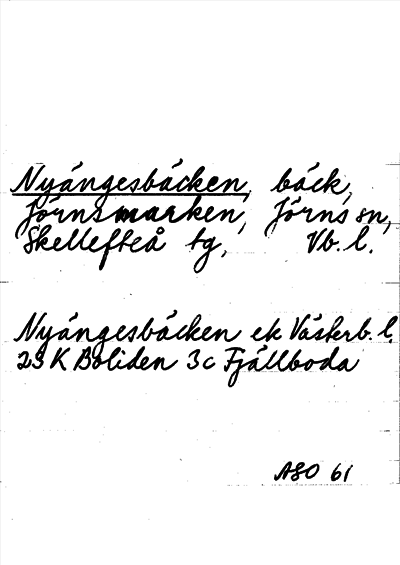 Nyängesbäcken, bäck,
Jörnsmarken, Jörns sn,
Skellefteå tg, Vb. l.
Nyängesbäcken ek Västerb. l.
23 K Boliden 3c Fjällboda
ASO 61